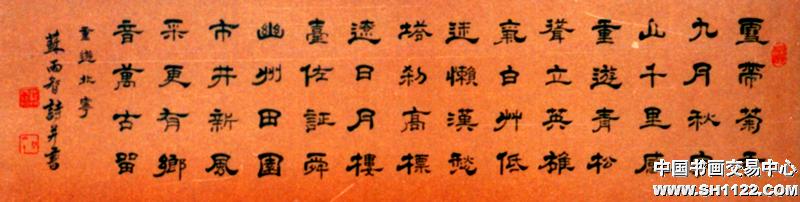 雪帶菊
九月秋
山千里
重遊青松
聳立英雄
氣白艸低
迷懶漢愁
塔刹高標
遼日月樓
臺佐証舜
幽州田園
市井新風
采更有鄉
音萬古留
重遊北寧
蘇雨智詩并書
中国书画交易中心
www.SH1122.com